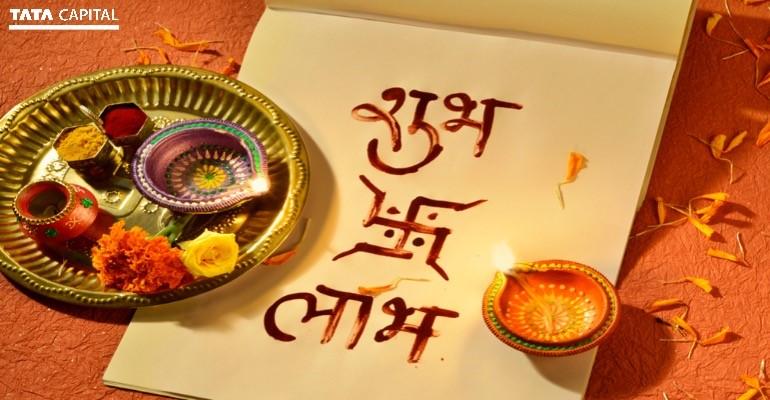 TATA CAPITAL
शुभ
卐
लाभ